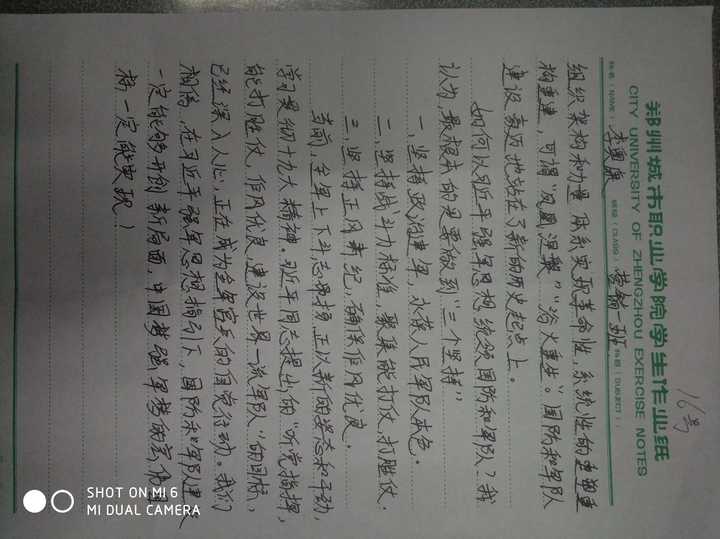 16号
郑州城市职业学院学生作业纸
CITY UNIVERSITY OF ZHENGZHOU EXERCISE NOTES
姓名(NAME): 李奥 班级(CLASS): 营销一班 科目(SUBJECT):
组织架构和力量体系实现革命性、系统性的重塑重
构重建，可谓“凤凰涅槃”“浴火重生”。国防和军队
建设豪迈地站在了新的历史起点上。
如何以习近平强军思想统领国防和军队？我
认为，最根本的是要做到“三个坚持”
一、坚持政治建军，永葆人民军队本色。
二、坚持战斗力标准，聚集能打仗，打胜仗．
三、坚持正风肃纪，确保作风优良．
当前，全军上下斗志昂扬，正以新的姿态和行动，
学习贯彻十九大精神。习近平同志提出的“听党指挥，
能打胜仗，作风优良，建设世界一流军队”的目标，
已经深入人心，正在成为全军官兵的自觉行动。我们
相信，在习近平强军思想指引下，国防和军队建设
一定能够开创新局面，中国梦强军梦的宏伟目
标一定能实现！
SHOT ON MI 6
MI DUAL CAMERA